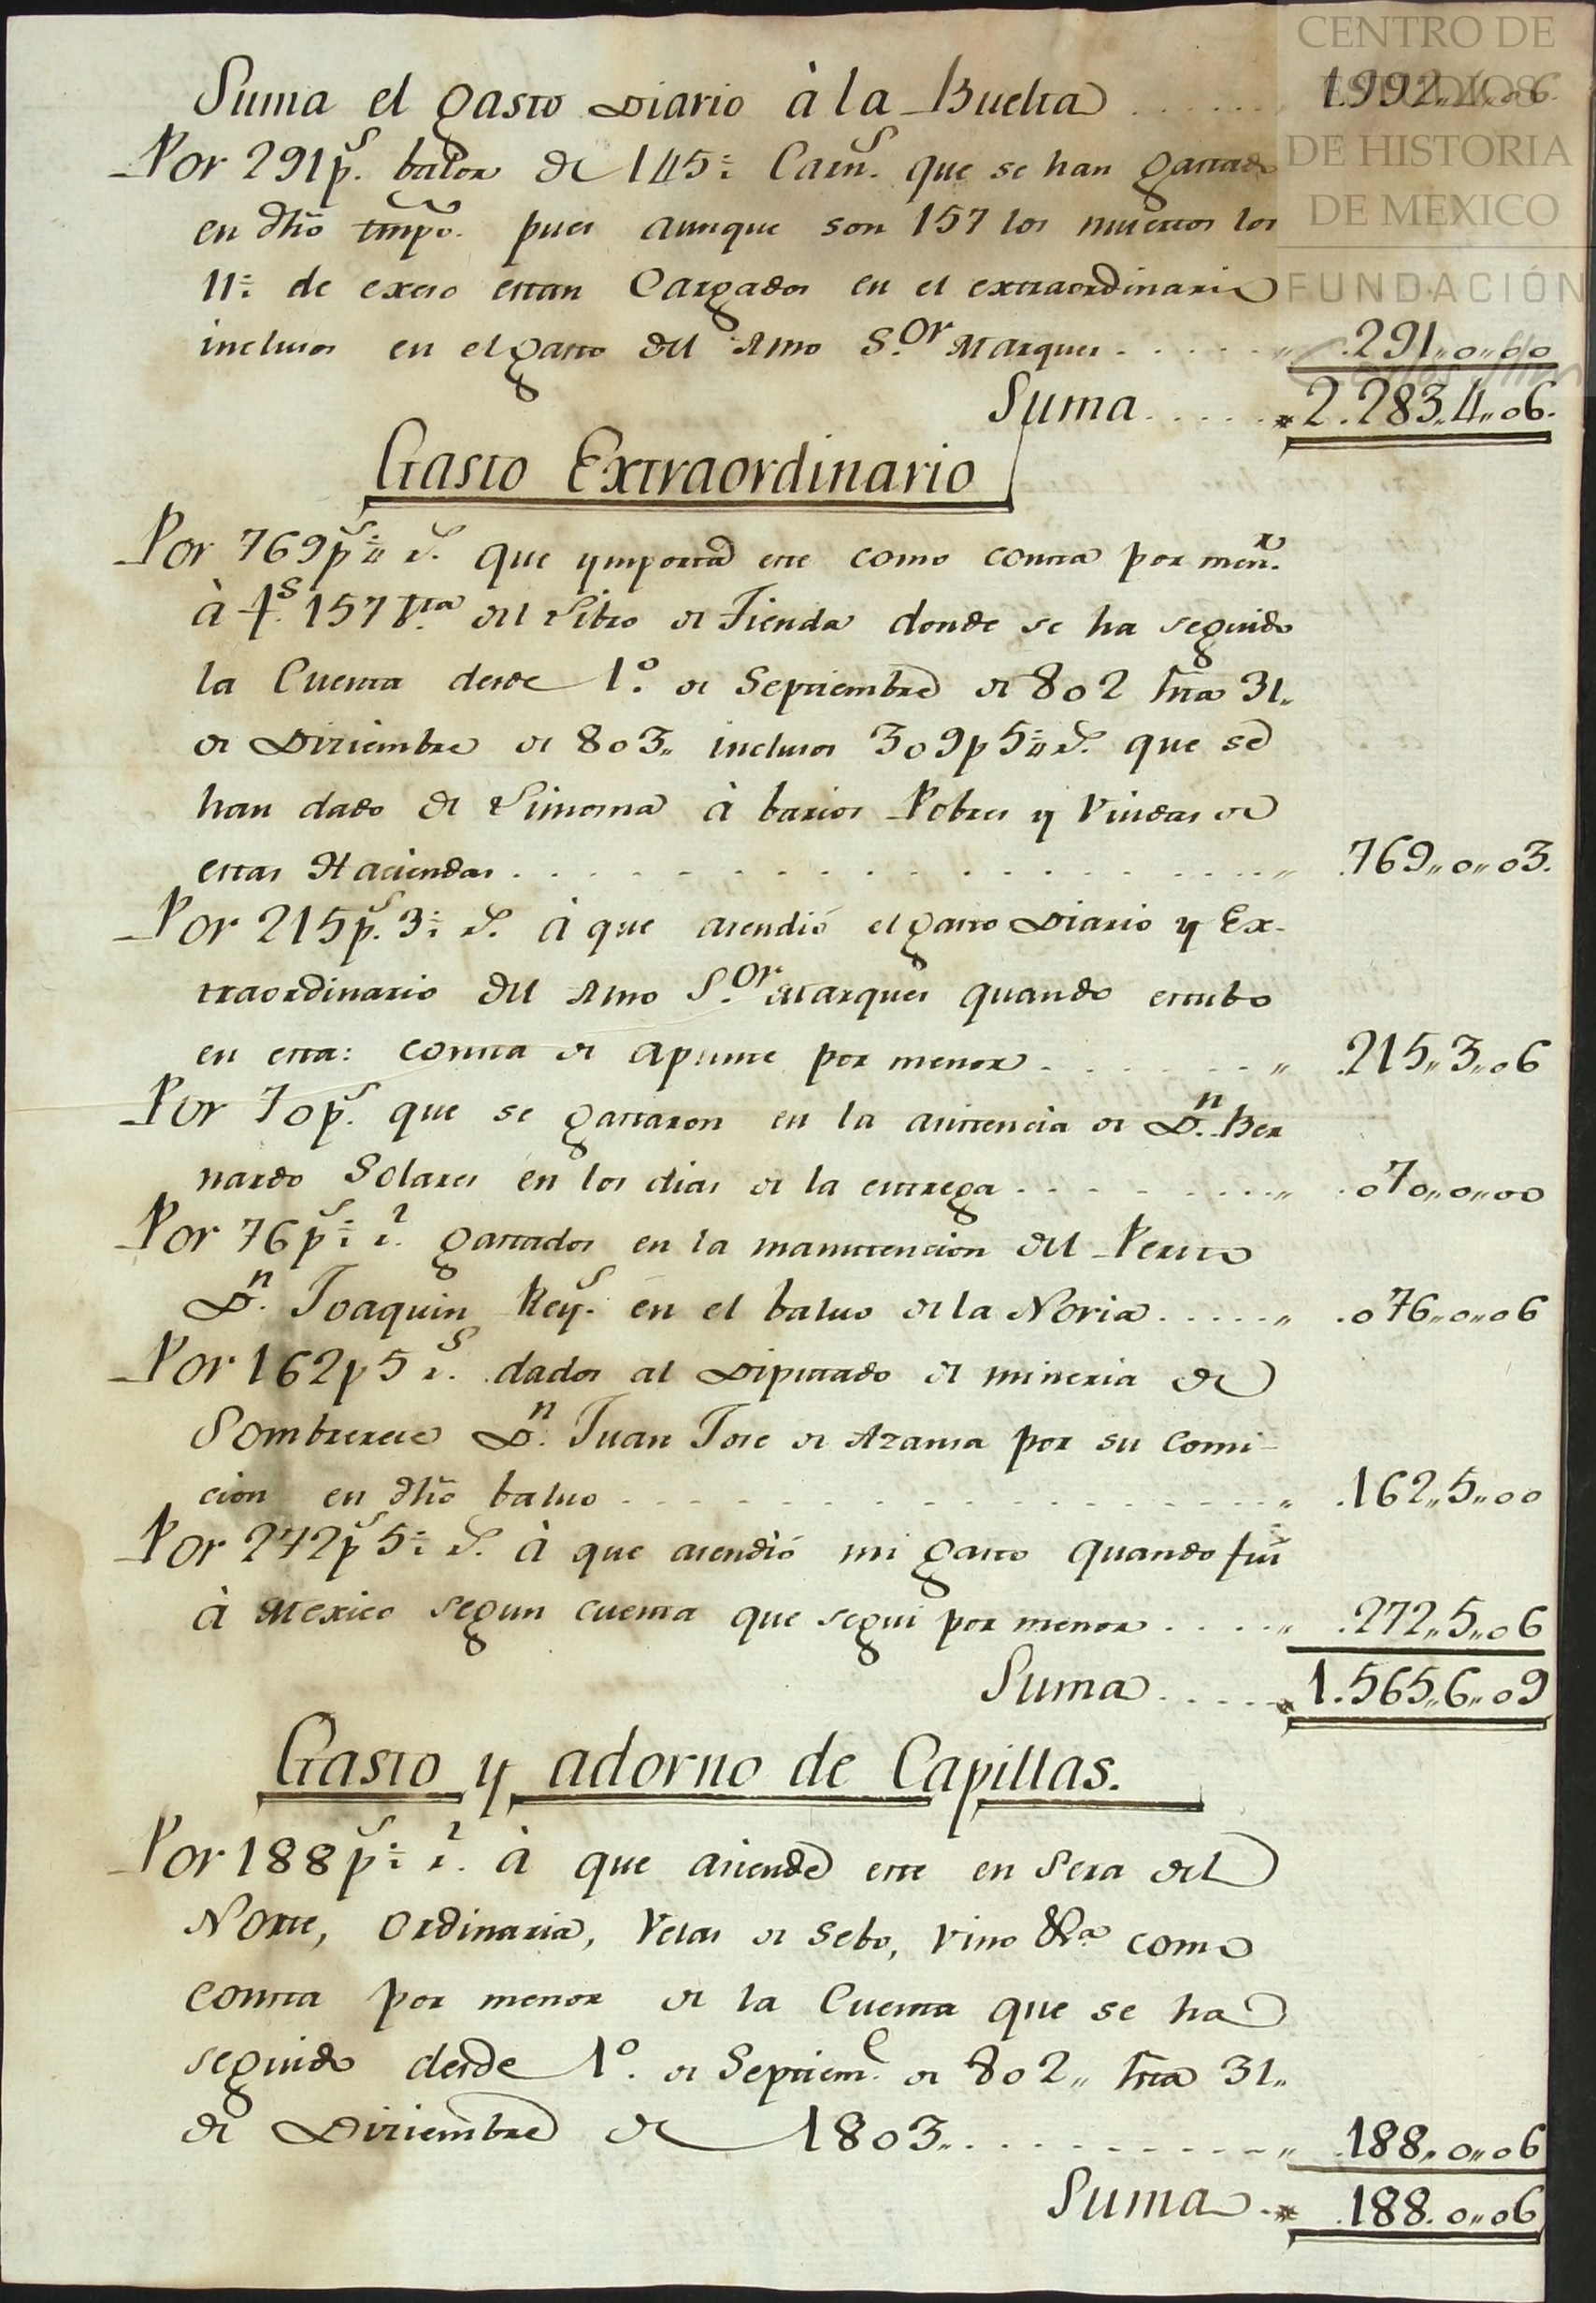 Suma el gasto Diario à la Buelta ...... 1.992,,4,,06.
Por 291 p.s balor de 145: Carn.s que se han gastado
en dho tmpo. pues aunque son 157 los muertos los
11: de exeso estan Cargados en el extraordinario
inclusos en el gasto del Amo S.or Marques ..... ,, .291,,0,,00
Suma ..... 2.283,,4,,06.
Gasto Extraordinario
Por 769 p.s que ymporta este como consta por men.r
à f.s 157 bta del Libro de Tienda donde se ha seguido
la Cuenta desde 1.o de Septiembre de 802 hta 31,,
de Diziembre de 803,, inclusos 309 p 5 que se
han dado de Limosna à barios Pobres y Viudas de
estas Haciendas ..... ,, .769,,0,,03.
Por 215 p.s 3 à que asendió el gasto Diario y Ex-
traordinario del Amo S.or Marques quando estubo
en esta: consta de apunte por menor ..... ,, .215,,3,,06
Por 70 p.s que se gastaron en la asistencia de D.n Ber
nardo Solares en los dias de la entrega ..... ,, .070,,0,,00
Por 76 p.s gastados en la manutencion del Perito
D.n Joaquin Rey.s en el baluo de la Noria ..... ,, .076,,0,,06
Por 162 p 5 r.s dados al Diputado de mineria de
Sombrerete D.n Juan Jose de Azansa por su comi-
cion en dho baluo ..... ,, .162,,5,,00
Por 272 p.s 5 à que asendió mi gasto quando fui
à Mexico segun cuenta que segui por menor ..... ,, .272,,5,,06
Suma ..... 1.565,,6,,09
Gasto y adorno de Capillas.
Por 188 p.s à que asiende este en Sera del
Norte, Ordinaria, Velas de Sebo, vino &a como
consta por menor de la Cuenta que se ha
seguido desde 1.o de Septiem.e de 802,, hta 31,,
de Diziembre de 1803 ..... ,, .188,,0,,06
Suma .. .188.0,,06
CENTRO DE
ESTUDIOS
DE HISTORIA
DE MEXICO
FUNDACIÓN
Carlos Slim